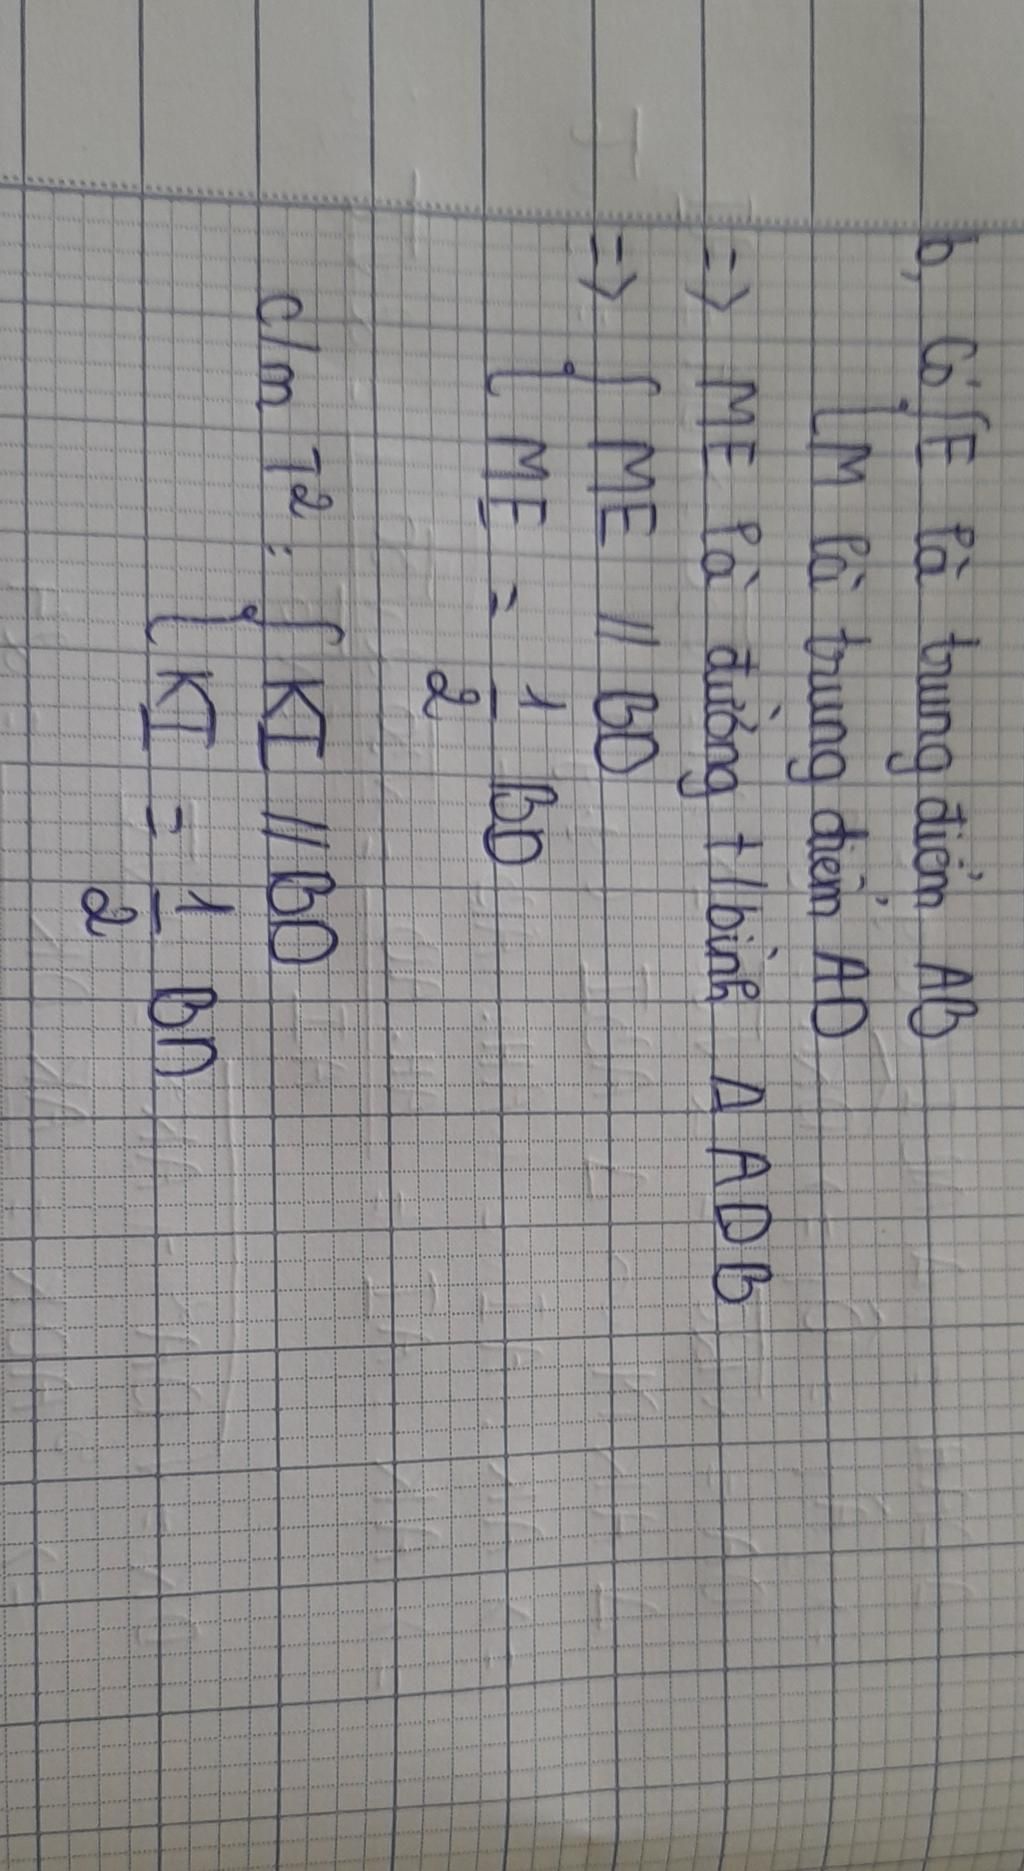 b, Có { E là trung điểm AB
{ M là trung điểm AD
=> ME là đường t/bình Δ ADB
=> { ME // BD
{ ME = 1/2 BD
c/m T2 : { KI // BD
{ KI = 1/2 BD